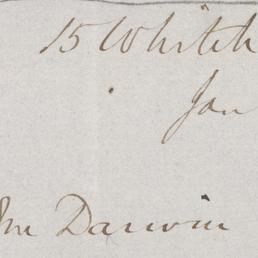 15 Whiteh
Jan
Darwin